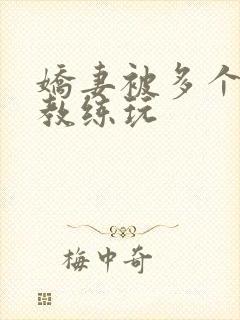 嬌妻被多个
教练玩
梅中奇